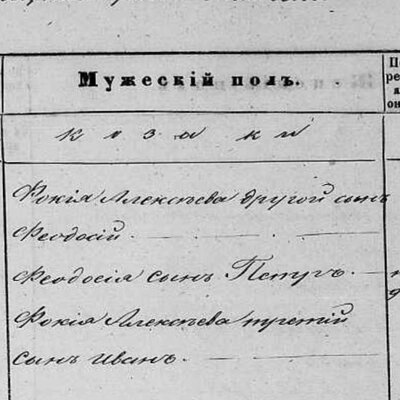 Мужескiй полъ.
козаки
Фокiя Алексѣева другой сынъ
Феодосiй.
Феодосiя сынъ Петръ. —
Фокiя Алексѣева третiй
сынъ Иванъ.